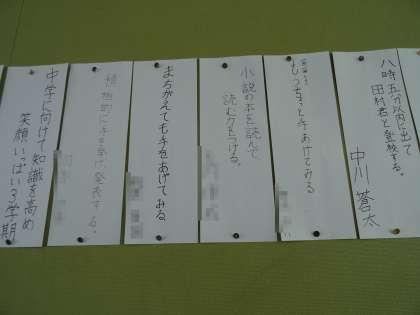 八時五分以内に出て
田村君と登校する。
中川 蒼太
もうちょっと手あげてみる
小説の本を読んで、
読む力をつける。
まちがえても手をあげてみる。
積極的に手を挙げ発表する。
中学に向けて知識を高め
笑顔いっぱい3学期